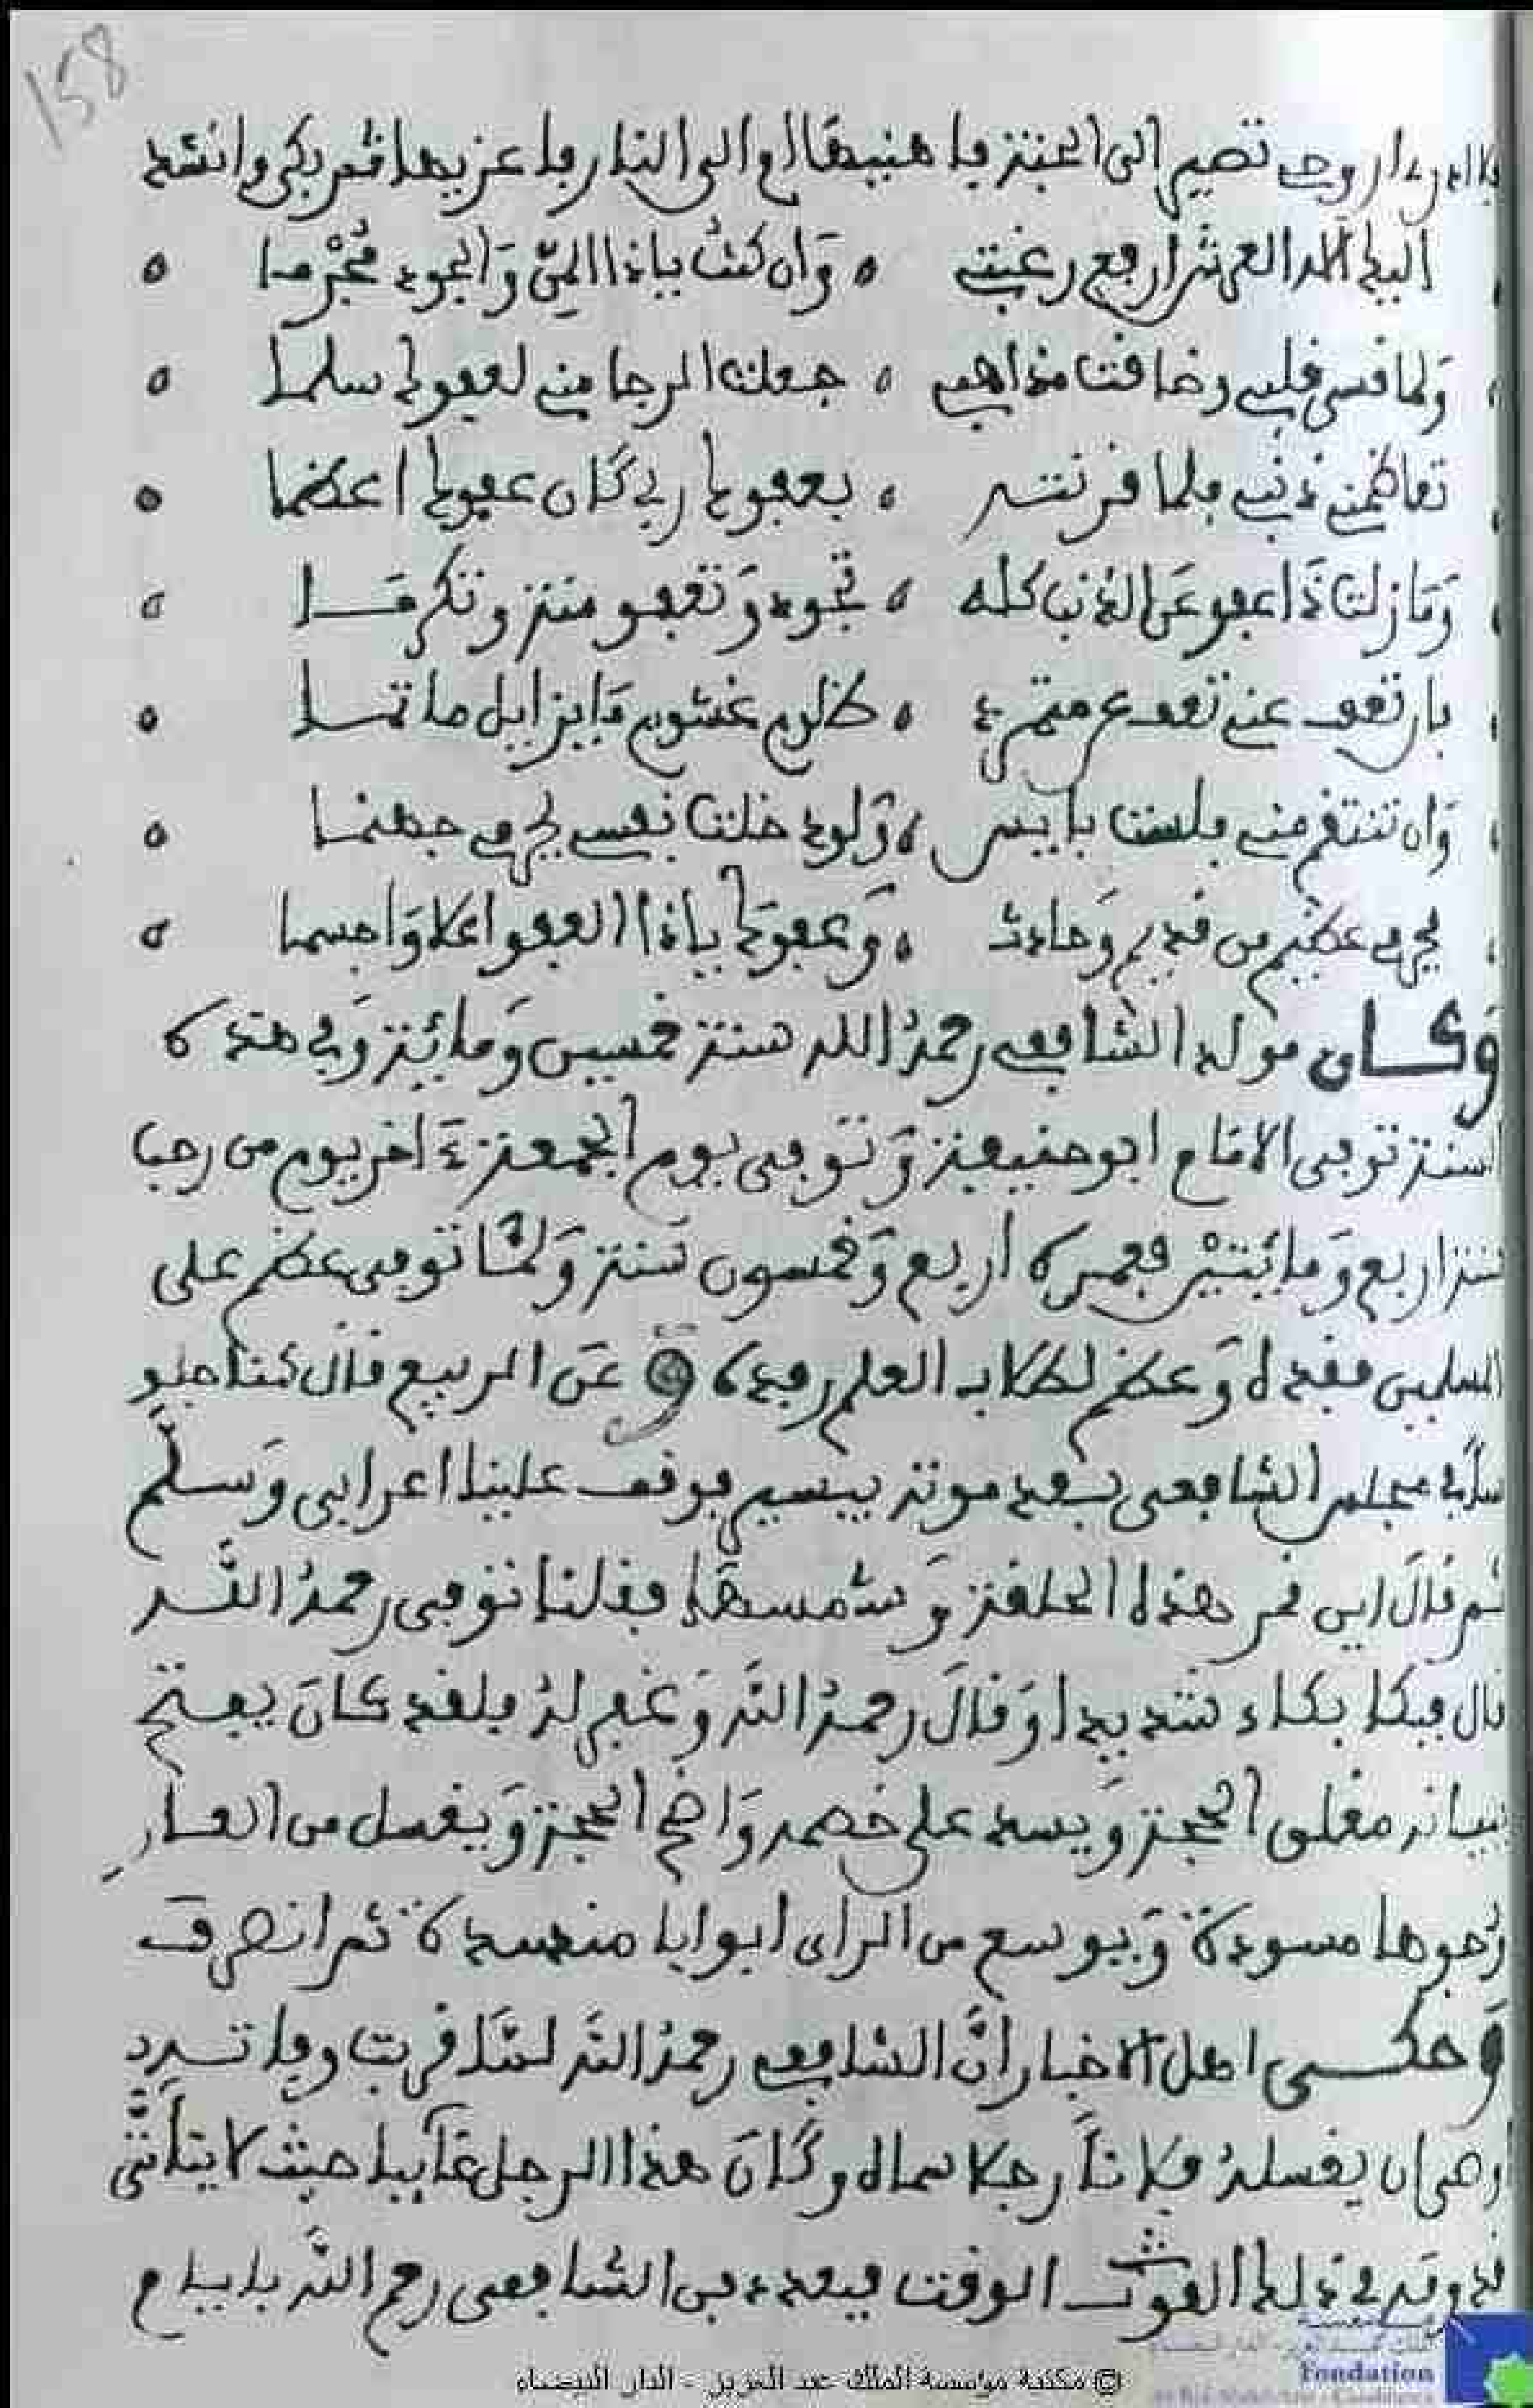 158
فلا ادري اروحي تصير الى الجنة فاهنيها او الى النار فاعزيها ثم بكى وانشد
اليك اله العرش ارفع رغبتي ه وان كنت ياذا المن والجود مجرما ه
ولما قسى قلبي وضاقت مذاهبي ه جعلت الرجا مني لعفوك سلما ه
تعاظمني ذنبي فلما قرنته ه بعفوك ربي كان عفوك اعظما ه
وما زلت ذا عفو عن الذنب كله ه تجود وتعفو منة وتكرما ه
فان تعف عني تعف عن متمرد ه ظلوم غشوم ما يزايل ماتما ه
وان تنتقم مني فلست بايس ه ولو دخلت نفسي بجرمي جهنما ه
فجرمي عظيم من قديم وحادث ه وعفوك ياذا العفو اعلا واجسما ه
وكان مولد الشافعي رحمه الله سنة خمسين ومائة وفي هذه
السنة توفى الامام ابو حنيفة وتوفى يوم الجمعة ءاخر يوم من رجب
سنة اربع ومائتين فعمره اربع وخمسون سنة ولما توفى عظم على
المسلمين فقده وعظم لطلاب العلم رفده وعن الربيع قال كنا جلو
سا في مجلس الشافعي بعد موته بيسير فوقف علينا اعرابي وسلم
ثم قال اين قمر هذه الحلقة وشمسها فقلنا توفى رحمه الله
قال فبكا بكاء شديدا وقال رحمه الله وغفر له فلقد كان يفتح
ببيانه مغلق الحجة ويسد على خصمه واضح الحجة ويغسل من العار
وجوها مسودة ويوسع من الراى ابوابا منسدة ثم انصرف
وحكى اهل الاخبار ان الشافعي رحمه الله لما قربت وفاته
اوصى ان يغسله فلانا رجلا سماه وكان هذا الرجل غايبا حيث لا يتأتى
قدومه في ذلك الوقت فبعد دفن الشافعي رحم الله بايام
© مكتبة مؤسسة الملك عبد العزيز - الدار البيضاء
Fondation